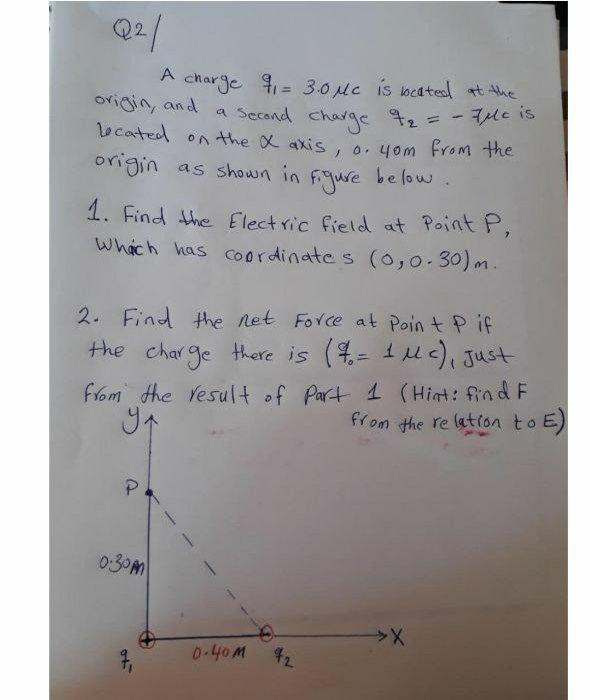 Q2/
A charge q₁ = 3.0 μc is located at the
origin, and a second charge q₂ = - 7μc is
located on the x axis, 0.40m from the
origin as shown in figure below.
1. Find the Electric field at Point P,
Which has coordinates (0,0.30)m.
2. Find the net Force at Point P if
the charge there is (q₀ = 1 μc), just
from the result of Part 1 (Hint: find F
from the relation to E)
y
P
0.30m
+
-
X
q₁
0.40m
q₂